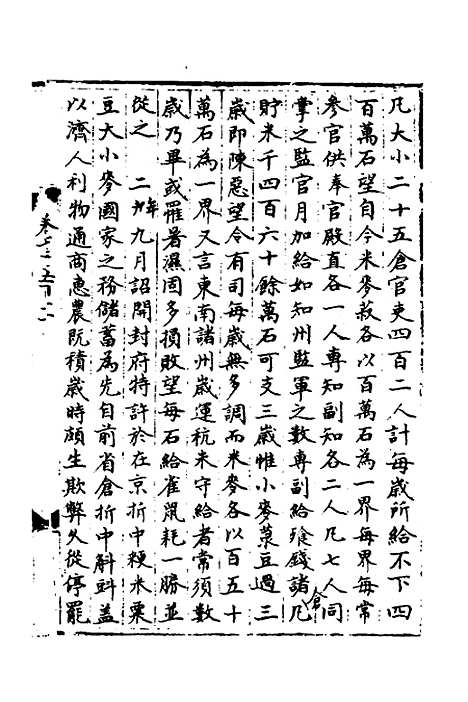 凡大小二十五倉官吏四百二人計每歲所給不下四
百萬石望自今米麥菽各以百萬石為一界每界每常
參官供奉官殿直各一人專知副知各二人凡七人同
掌之監官月加給如知州監軍之數專副給飱錢諸倉凡
貯米千四百六十餘萬石可支三歲惟小麥菉豆過三
歲即陳惡望令有司每歲無多調而米麥各以百五十
萬石為一界又言東南諸州歲運秔米守給者常須數
歲乃畢或罹暑濕固多損敗望每石給雀鼠耗一勝並
從之 二年九月詔開封府特許於在京折中粳米粟
豆大小麥國家之務儲蓄為先自前省倉折中斛㪷蓋
以濟人利物通商惠農既積歲時頗生欺弊久從停罷